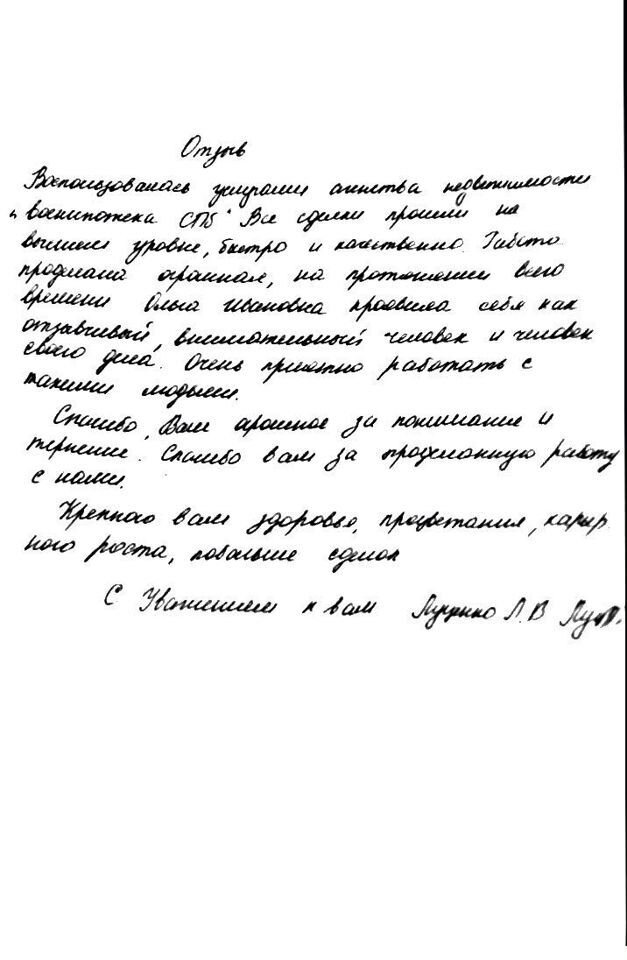 Отзыв
Воспользовалась услугами агенства недвижимости
"Военипотека СПБ" Все сделки прошли на
высшем уровне, быстро и качественно. Работа
проделана огромная, на протяжении всего
времени Ольга Ивановна проявила себя как
отзывчивый, внимательный человек и человек
своего дела. Очень приятно работать с
такими людьми.
Спасибо Вам огромное за понимание и
терпение. Спасибо вам за проделанную работу
с нами.
Крепкого вам здоровья, процветания, карьер
ного роста, побольше сделок
С Уважением к вам Л.В